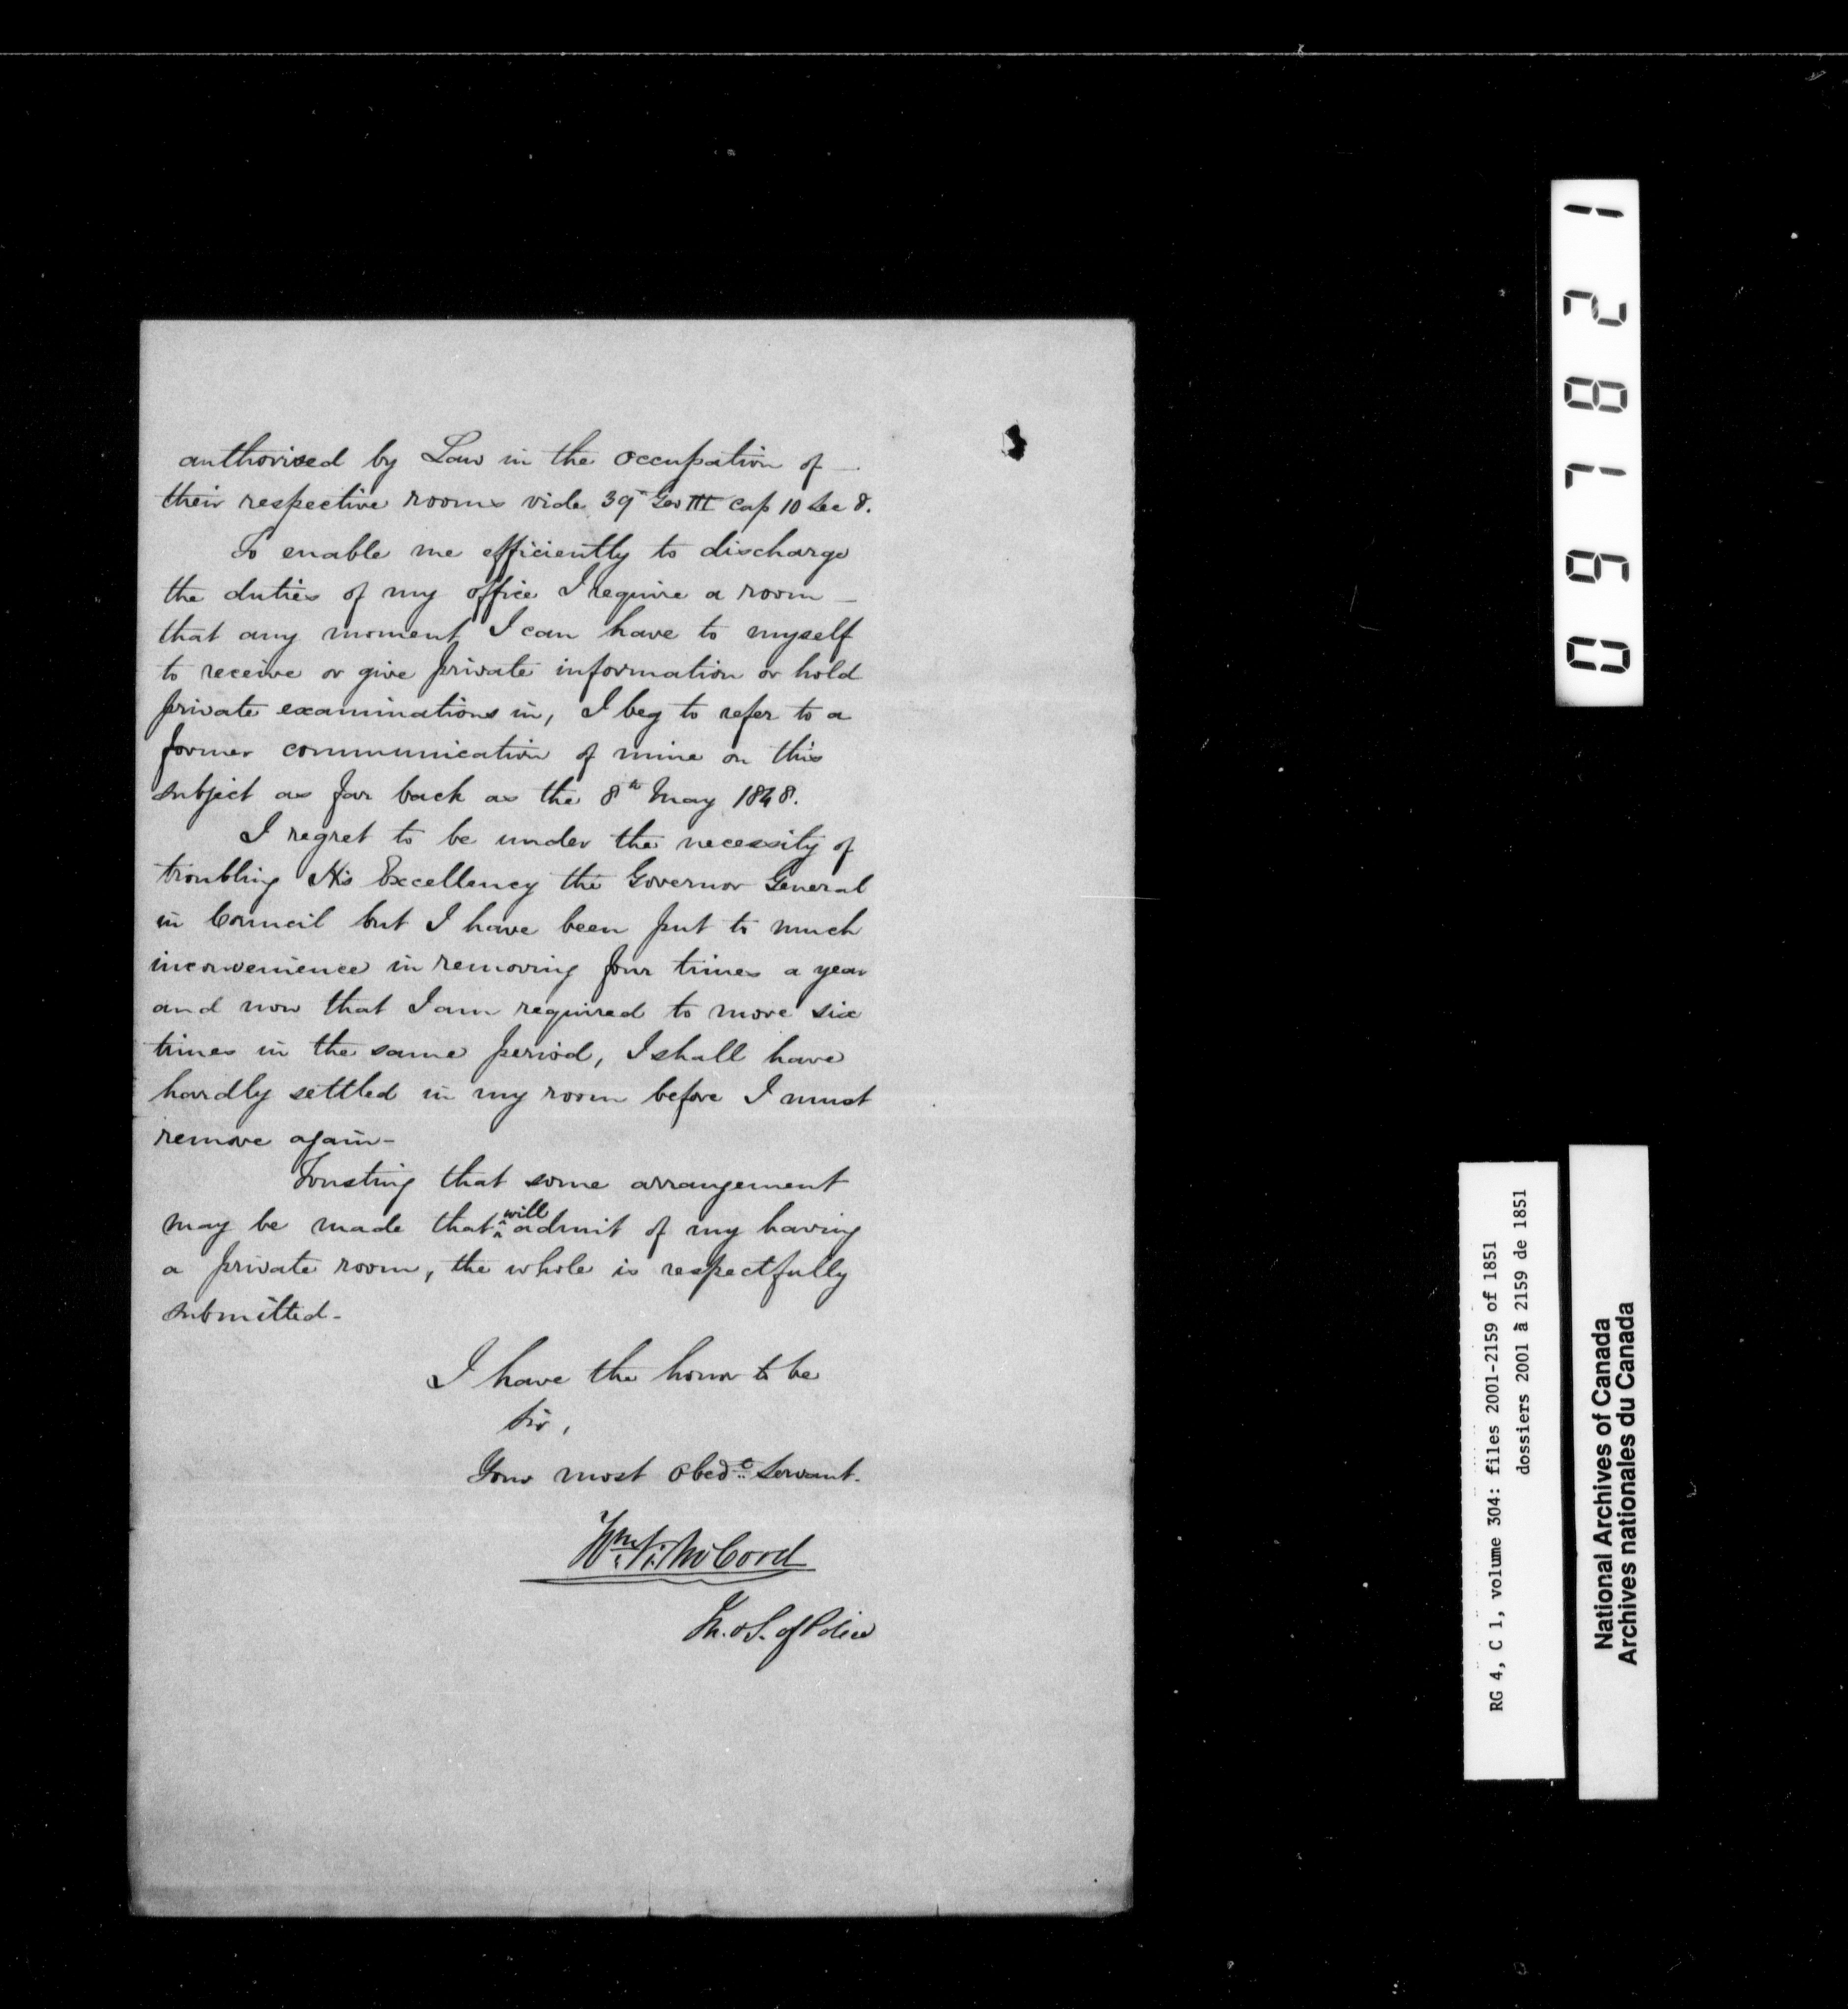 authorised by Law in the occupation of —
their respective rooms vide 39th Geo III Cap 10 Sec 8.
To enable me efficiently to discharge
the duties of my office I require a room —
that any moment I can have to myself
to receive or give private information or hold
private examinations in, I beg to refer to a
former communication of mine on this
subject as far back as the 8th May 1848.
I regret to be under the necessity of
troubling His Excellency the Governor General
in Council but I have been put to much
inconvenience in removing four times a year
and now that I am required to move six
times in the same period, I shall have
hardly settled in my room before I must
remove again-
Trusting that some arrangement
may be made that will admit of my having
a private room, the whole is respectfully
submitted-
I have the honor to be
Sir,
Your most Obedt. Servant.
Wm. McCord
In. & S. of Police
067821
RG 4, C 1, volume 304: files 2001-2159 of 1851
dossiers 2001 à 2159 de 1851
National Archives of Canada
Archives nationales du Canada